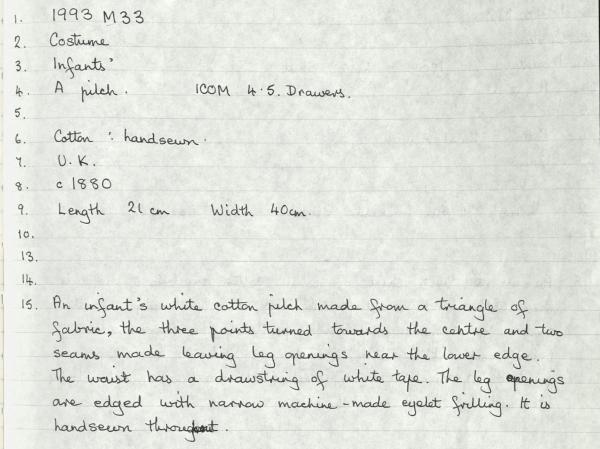 1. 1993 M33
2. Costume
3. Infants'
4. A pilch. ICOM 4.5. Drawers.
5.
6. Cotton : handsewn.
7. U.K.
8. c 1880
9. Length 21 cm Width 40cm.
10.
13.
14.
15. An infant's white cotton pilch made from a triangle of
fabric, the three points turned towards the centre and two
seams made leaving leg openings near the lower edge.
The waist has a drawstring of white tape. The leg openings
are edged with narrow machine-made eyelet frilling. It is
handsewn throughout.